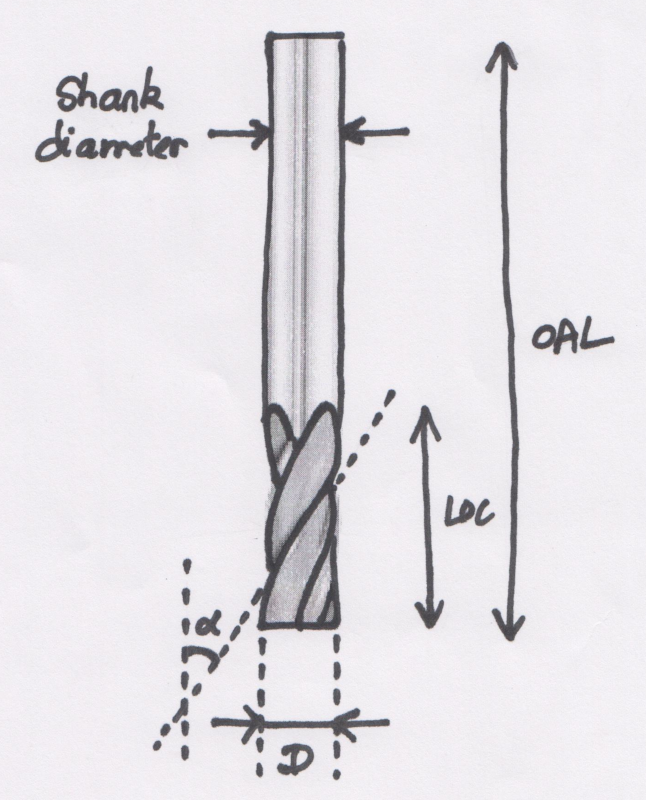 Shank
diameter
OAL
LOC
α
D